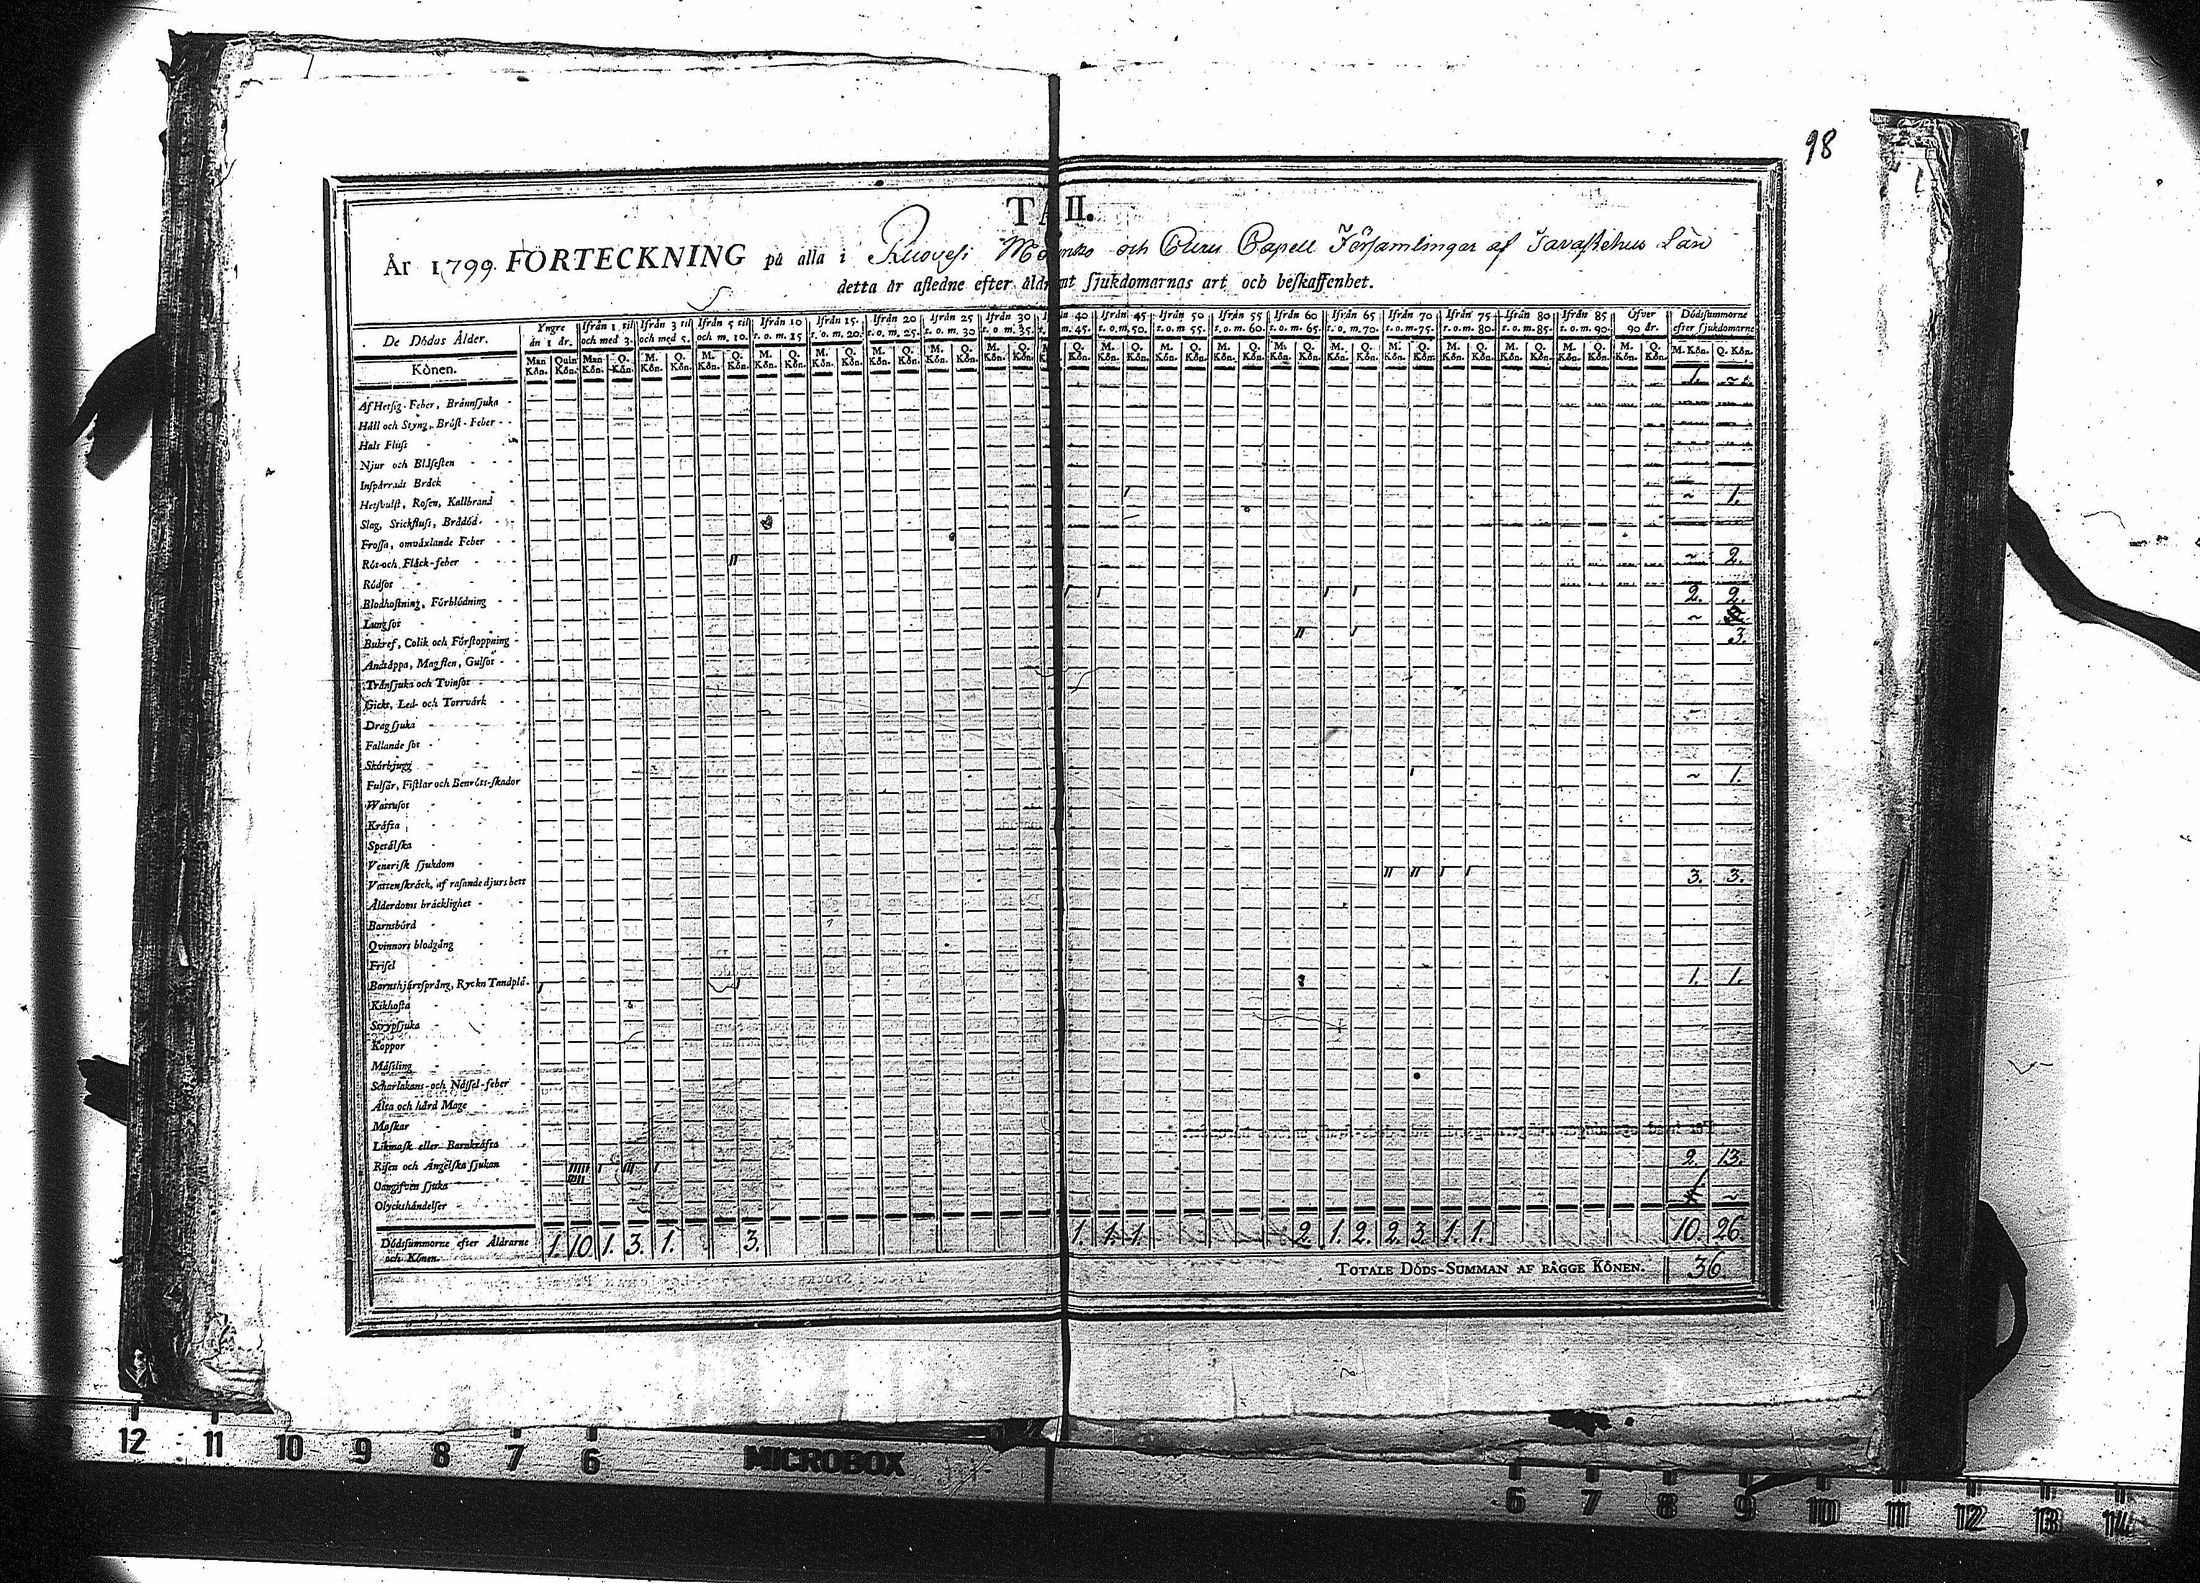 98
TA II.
År 1799. FÖRTECKNING på alla i Ruovesi Moder och Capell Församlingar af Tavastehus Län
detta år afledne efter åldrar samt sjukdomarnas art och beskaffenhet.
De Dödas Ålder. Yngre än 1 år. Ifrån 1 til och med 3. Ifrån 3 til och med 5. Ifrån 5 til och m. 10. Ifrån 10 t. o. m. 15 Ifrån 15. t. o. m. 20. Ifrån 20 t. o. m. 25. Ifrån 25 t. o. m. 30 Ifrån 30 t. o. m. 35. 40 m. 45. Ifrån 45 t. o. m. 50. Ifrån 50 t. o. m 55. Ifrån 55 t. o. m. 60. Ifrån 60 t. o. m. 65. Ifrån 65 t. o. m. 70. Ifrån 70 t. o. m. 75. Ifrån 75 t. o. m. 80. Ifrån 80 t. o. m. 85. Ifrån 85 t. o. m. 90. Öfver 90 år. Dödssummorne efter sjukdomarne
Könen. Man Kön. Quin Kön. Man Kön. Q. Kön. M. Kön. Q. Kön. M. Kön. Q. Kön. M. Kön. Q. Kön. M. Kön. Q. Kön. M. Kön. Q. Kön. M. Kön. Q. Kön. M. Kön. Q. Kön. M. Kön. Q. Kön. M. Kön. Q. Kön. M. Kön. Q. Kön. M. Kön. Q. Kön. M. Kön. Q. Kön. M. Kön. Q. Kön. M. Kön. Q. Kön. M. Kön. Q. Kön. M. Kön. Q. Kön. M. Kön. Q. Kön. M. Kön. Q. Kön. M. Kön. Q. Kön.
1. ~
Af Hetsig-Feber, Brännsjuka
Håll och Styng, Bröst-Feber
Hals Fluss
Njur och Blåsesten
Inspärradt Bråck
Hetsbulst, Rosen, Kallbrand ~ 1.
Slag, Stickfluss, Brådöd
Frossa, omväxlande Feber
Röt-och Fläck-feber ~ 2.
Rödsot
Blodhostning, Förblödning 2. 2.
Lungsot ~
Bukref, Colik och Förstoppning 3.
Andtäppa, Magsten, Gulsot
Tränsjuka och Tvinsot
Gickt, Led- och Torrvärk
Dragsjuka
Fallande sot
Skörbjugg
Fulsår, Fistlar och Benröts-skador ~ 1.
Wattusot
Kräfta
Spetälska
Venerisk sjukdom
Vattenskräck, af rasande djurs bett 3. 3.
Ålderdoms bräcklighet
Barnsbörd
Qvinnors blodgång
Frisel
Barnshjertsprång, Ryck Tandplå. 1. 1.
Kikhosta
Strypsjuka
Koppor
Mässling
Scharlakans- och Nässel-feber
Älta och hård Mage
Maskar
Likmask eller Barnkräfta
Risen och Ängelska sjukan 2. 13.
Oangifven sjuka
Olyckshändelser ~
Dödssummorne efter Åldrarne och Könen. 1. 10 1. 3. 1. 3. 1. 1. 1. 2. 1. 2. 2. 3. 1. 1. 10. 26
TOTALE DÖDS-SUMMAN AF BÄGGE KÖNEN. 36.
12 11 10 9 8 7 6 MICROBOX 6 7 8 9 10 11 12 13 14